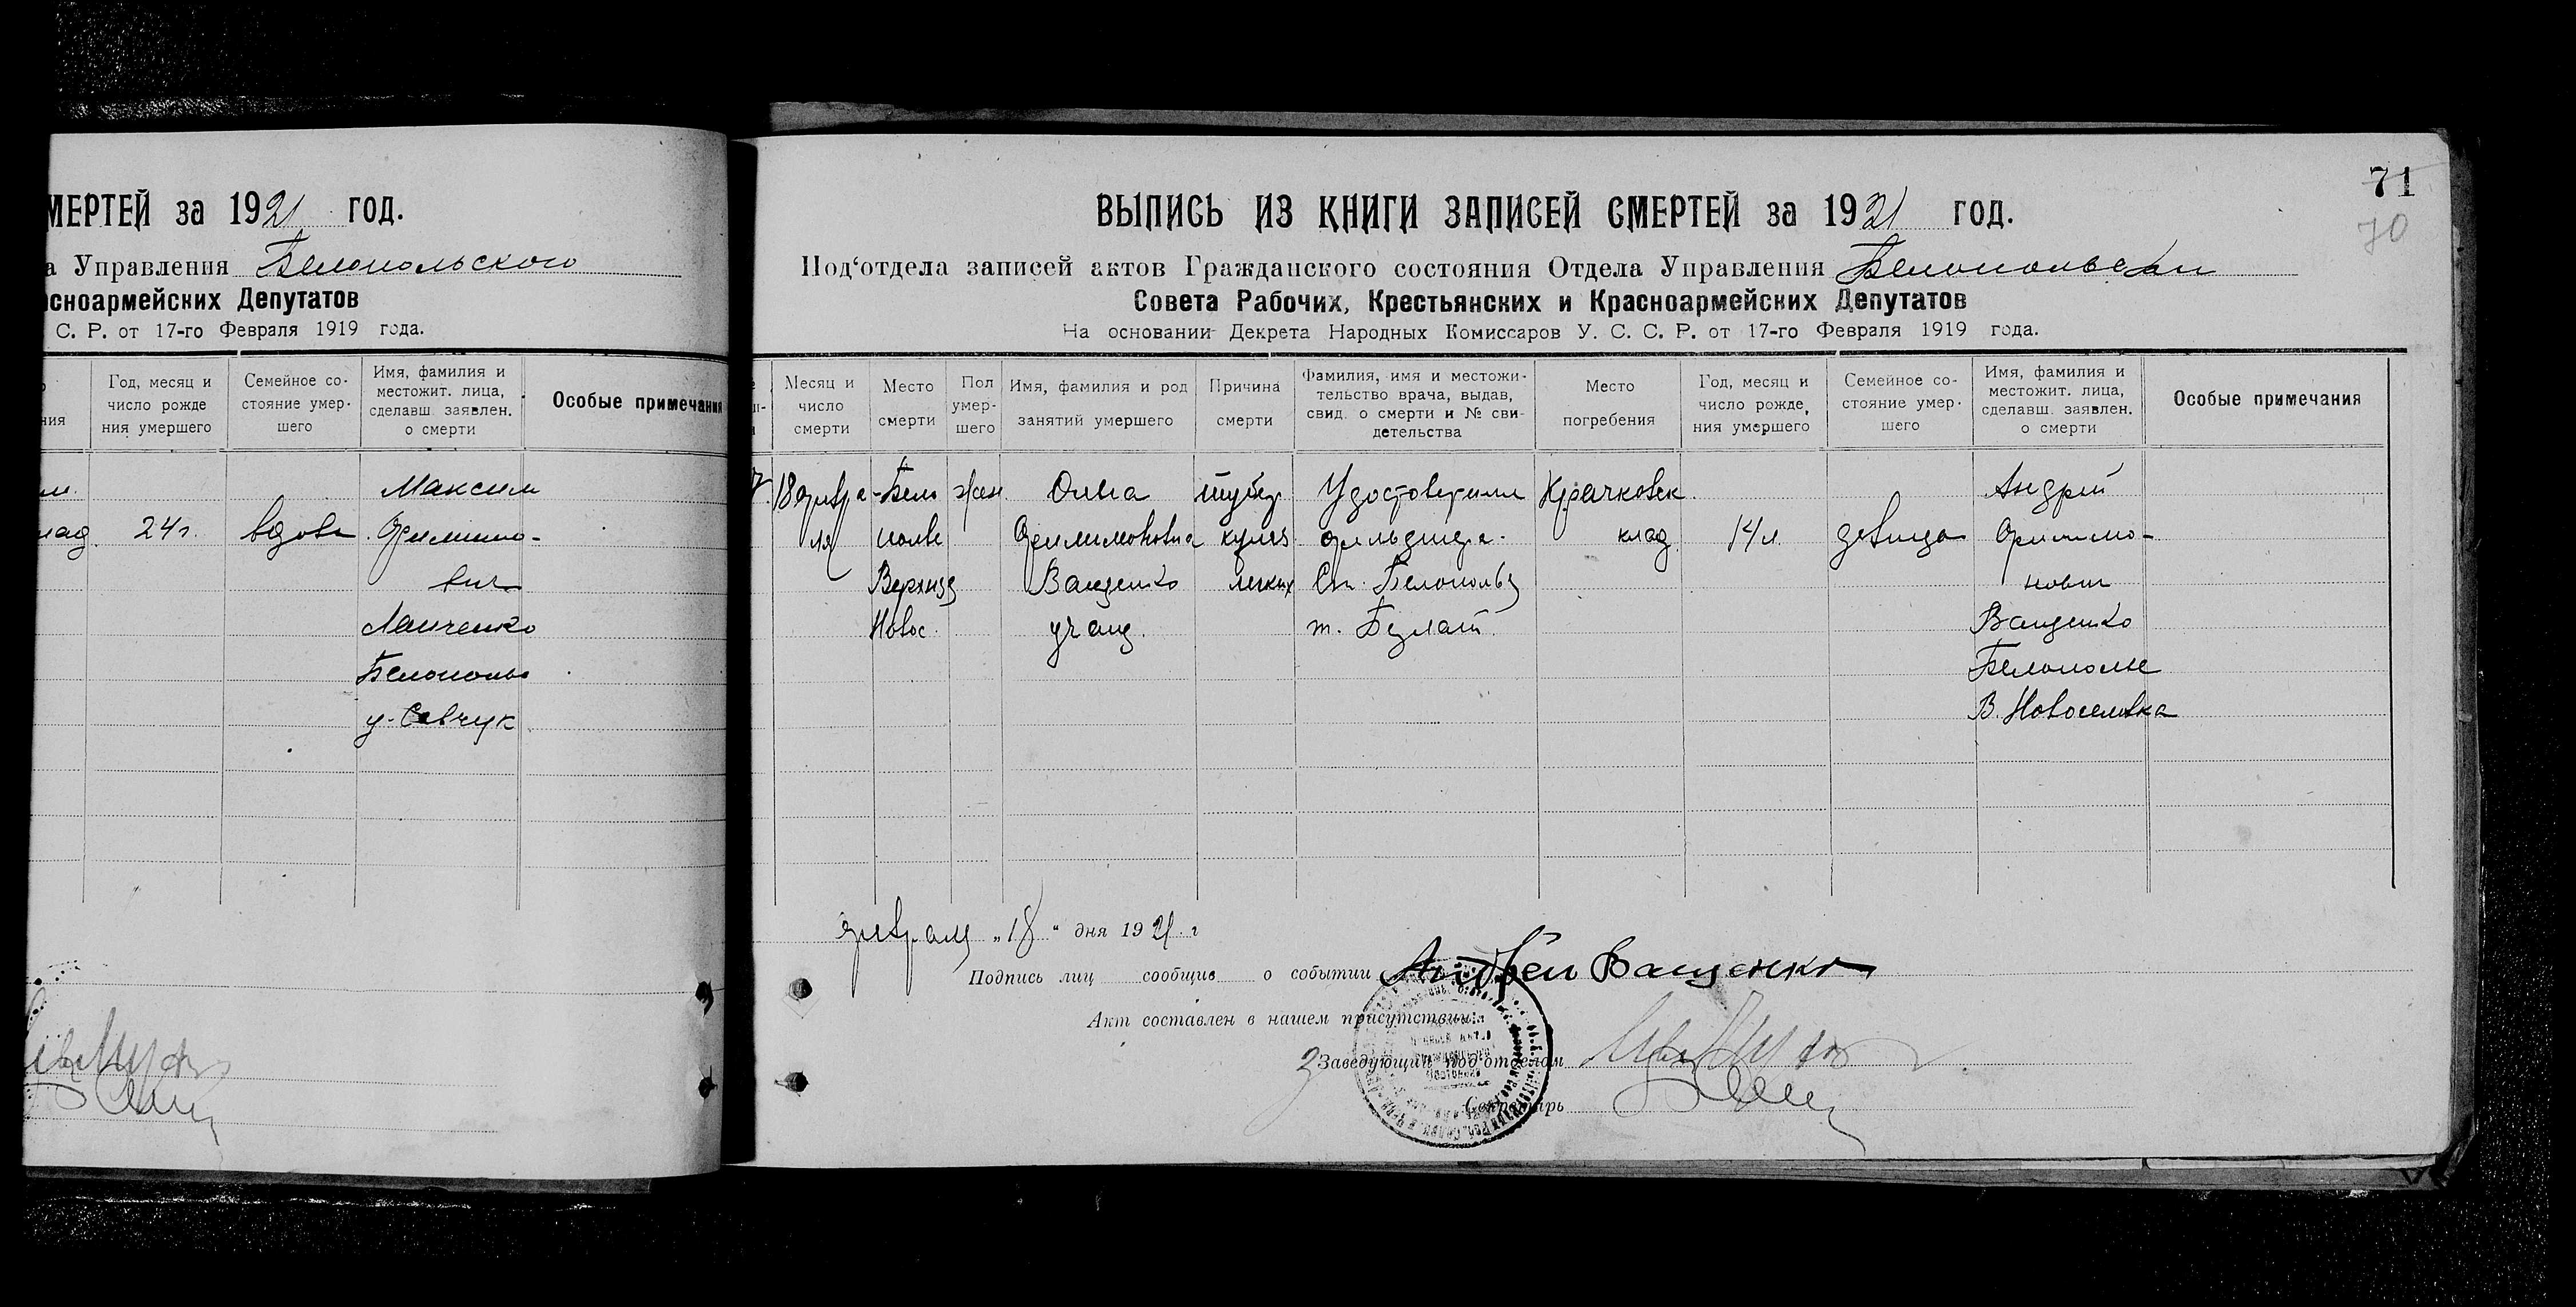 МЕРТЕЙ за 1921 год.
а Управления Белопольского
асноармейских Депутатов
С. Р. от 17-го Февраля 1919 года.
ния
Год, месяц и
число рожде
ния умершего
Семейное со-
стояние умер-
шего
Имя, фамилия и
местожит. лица,
сделавш. заявлен.
о смерти
Особые примечания
Максим
24 г. вдова
вич
Белополье
71
70
ВЫПИСЬ ИЗ КНИГИ ЗАПИСЕЙ СМЕРТЕЙ за 1921 год.
Под'отдела записей актов Гражданского состояния Отдела Управления
Совета Рабочих, Крестьянских и Красноармейских Депутатов
На основании Декрета Народных Комиссаров У. С. С. Р. от 17-го Февраля 1919 года.
Месяц и
число
смерти
Место
смерти
Пол
умер-
шего
Имя, фамилия и род
занятий умершего
Причина
смерти
Фамилия, имя и местожи-
тельство врача, выдав,
свид. о смерти и № сви-
детельства
Место
погребения
Год, месяц и
число рожде,
ния умершего
Семейное со-
стояние умер-
шего
Имя, фамилия и
местожит. лица,
сделавш. заявлен.
о смерти
Особые примечания
18 февра-
ля
Бело
полье
Новос.
жен
Ольга
Филимоновна
Ващенко
учащ.
тубер
кулез
легких
Удостоверили
фельдшера
Крачковск
клад.
14 л.
девица
Андрей
Филимо-
нович
Ващенко
Белополье
В. Новоселовка
февраля „18“ дня 1921 г
Подпись лиц сообщив о событии Андрей Ващенко
Акт составлен в нашем присутствии:
Заведующий под'отделом
Секретарь